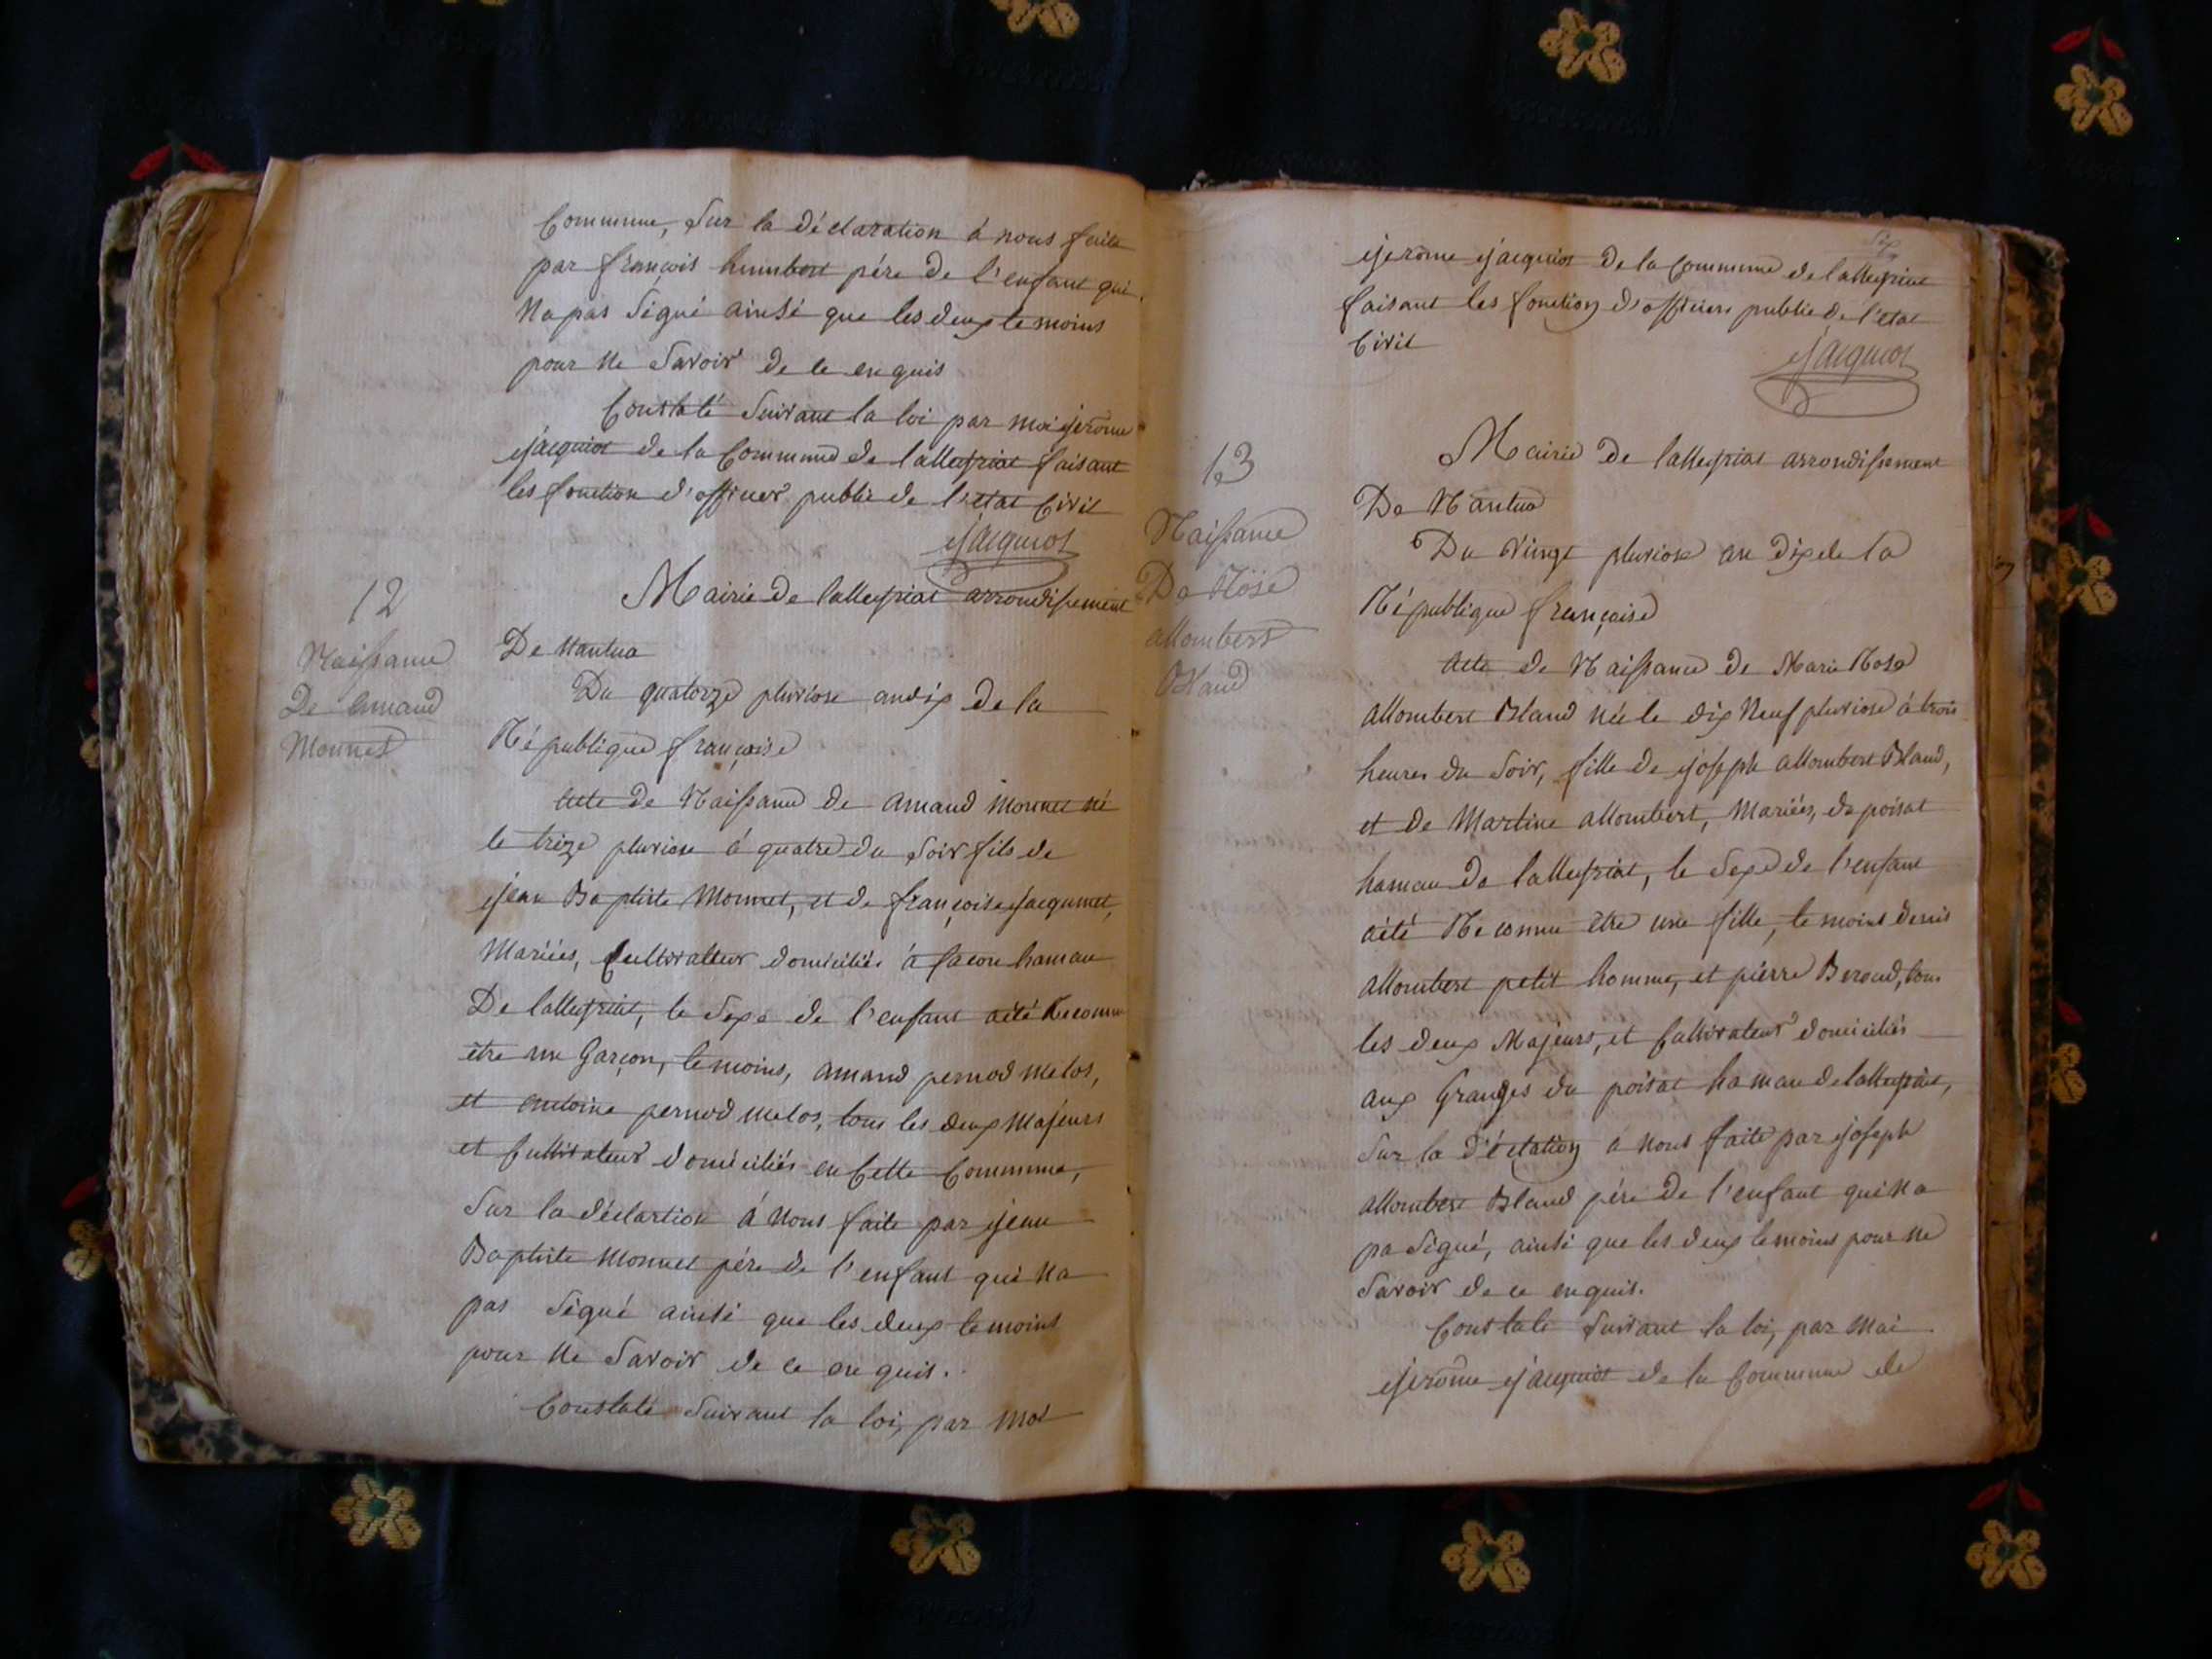 Commune, Sur la déclaration à nous faite
par françois humbert pére de l'enfant qui
Na pas Signé ainsi que les deux temoins
pour Ne Savoir de ce enquis
Constaté Suivant la loi par moi jerome
jacquiot de la Commune de lalleyriat faisant
les fonction d'officier public de l'etat Civil
jacquiot
12
Naissance
De amand
Monnet
Mairie de lalleyriat arrondissement
De Nantua
Du quatorze pluviose an dix de la
République française
Acte de Naissance de amand Monnet né
le treize pluviose à quatre du Soir fils de
jean Baptiste Monnet, et de françoise jacquinet,
Mariées, Cultivatteur domiciliés à lacou hamau
De lalleyriat, le Sexe de l'enfant aété Reconnu
être un Garçon, temoins, amand pernod melos,
et antoine pernod melos, tous les deux Majeurs
et Cultivateur domiciliés en Cette Commune,
Sur la déclartion à Nous faite par jean
Baptiste Monnet pére de l'enfant qui Na
pas Signé ainsi que les deux temoins
pour Ne Savoir de ce en quis.
Constaté Suivant la loi, par Moi
Six
jerôme jacquiot de la Commune de lalleyriat
faisant les fonction d'officiers public de l'etat
Civil
jacquiot
13
Naissance
De Röse
allombert
Bland
Mairie de lalleyriat arrondissement
De Nantua
Du Vingt pluviose an dix de la
République française
Acte de Naissance de Marie Rose
allombert Bland née le dix Neuf pluviose à trois
heures du Soir, fille de joseph allombert Bland,
et de Martine allombert, Mariées, de poisat
hamau de lalleyriat, le Sexe de l'enfant
aété Reconnu être une fille, temoins denis
allombert petit homme, et pierre Beroud, tous
les deux Majeurs, et Cultivateur domiciliés
aux Granges du poisat hamau de lalleyriat,
Sur la d'éclation à nous faite par joseph
allombert Bland pére de l'enfant qui Na
pa Signé, ainsi que les deux temoins pour Ne
Savoir de ce enquis.
Constaté Suivant la loi, par Moi
jerôme jacquiot de la Commune de